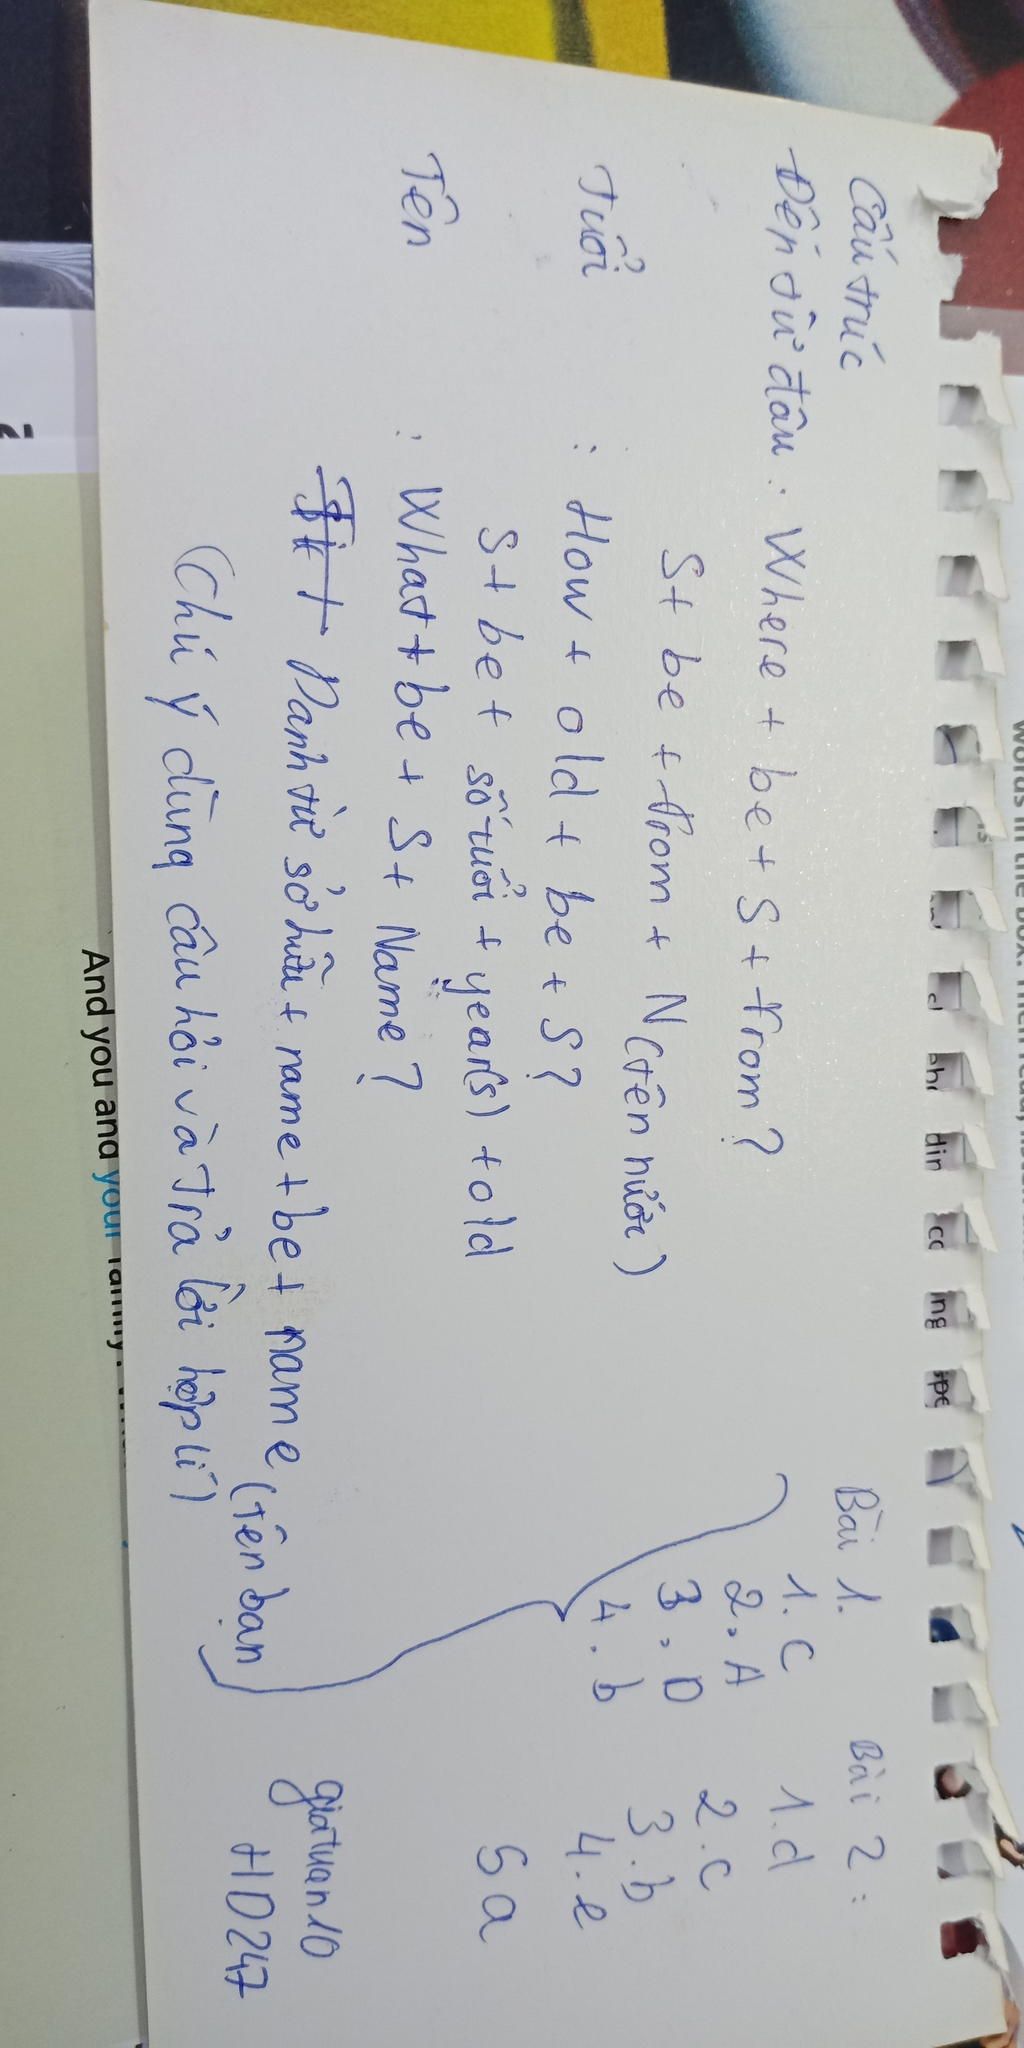 Cấu trúc
Đến từ đâu : Where + be + S + from?
S + be + from + N (tên nước)
Tuổi : How + old + be + S?
S + be + số tuổi + year(s) + old
Tên : What + be + S + Name?
Danh từ sở hữu + name + be + name (tên bạn
(Chú ý dùng câu hỏi và trả lời hợp lí)
Bài 1.
1. C
2. A
3. D
4. b
Bài 2 :
1. d
2. c
3. b
4. e
5 a
giatuan10
HD247
And you and your family.